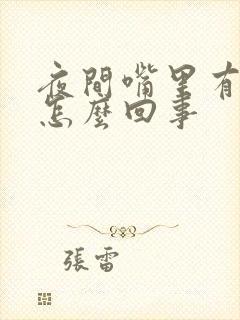 夜間嘴里有
怎麼回事
張雷